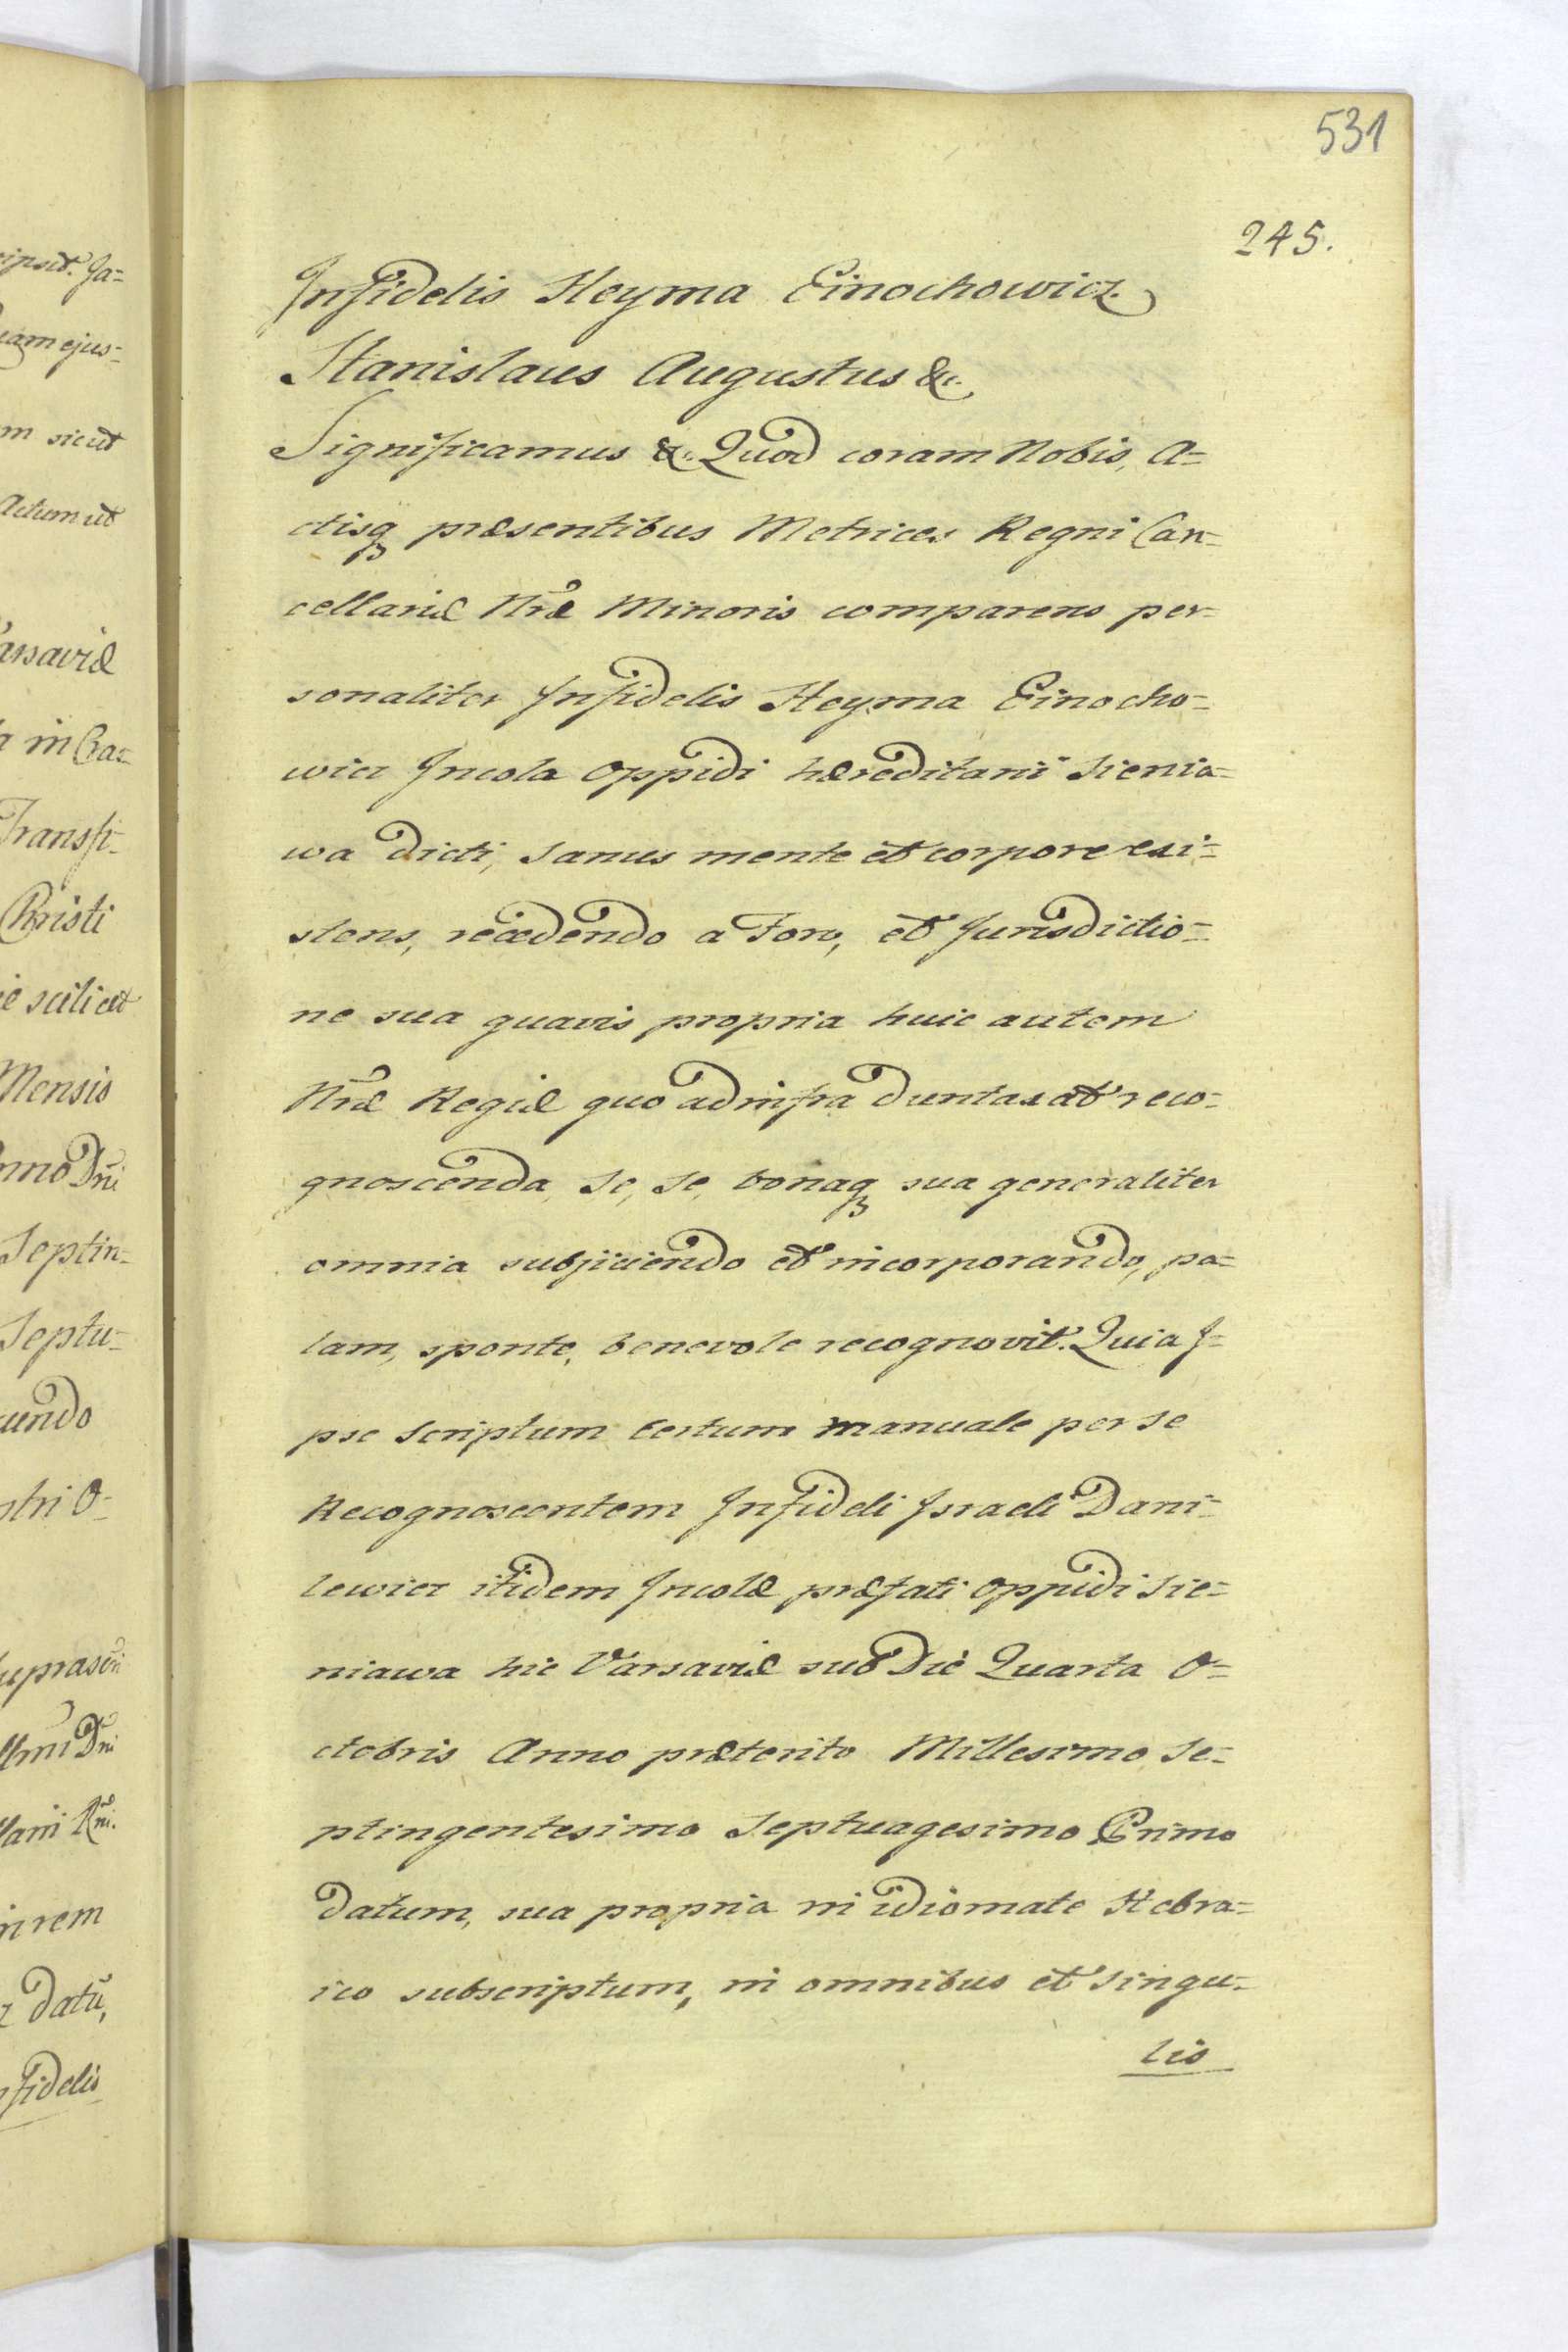 531
245.
Infidelis Heyma Einochowicz
Stanislaus Augustus &c.
Significamus &c. Quod coram Nobis, A=
ctisq₃ præsentibus Metrices Regni Can=
cellariæ Nr̃æ Minoris comparens per=
sonaliter Infidelis Heyma Einocho=
wicz Incola Oppidi hæreditarii Sienia=
wa dicti, sanus mente et corpore exi=
stens, recedendo a Foro, et Jurisdictio=
ne sua quavis propria huic autem
Nr̃æ Regiæ quo ad infra duntaxat reco=
gnoscenda, se, se, bonaq₃ sua generaliter
omnia subjiciendo et incorporando, pa=
lam, sponte, benevole recognovit. Quia I=
pse scriptum certum manuale per se
Recognoscentem Infideli Israeli Dani=
lewicz itidem Incolæ præfati Oppidi Sie=
niawa hic Varsaviæ sub Die Quarta O=
ctobris Anno præterito Millesimo Se=
ptingentesimo Septuagesimo Primo
datum, sua propria in idiomate Hebra=
ico subscriptum, in omnibus et singu=
lis
ipsit. Ja=
uam ejus=
m sicut
Actum ut
arsaviæ
a in Cra=
Transfi=
Christi
scilicet
Mensis
nno Dni
Septin=
Septu=
cundo
stri O=
Dni
Rni.
in rem
datũ,
nfidelis